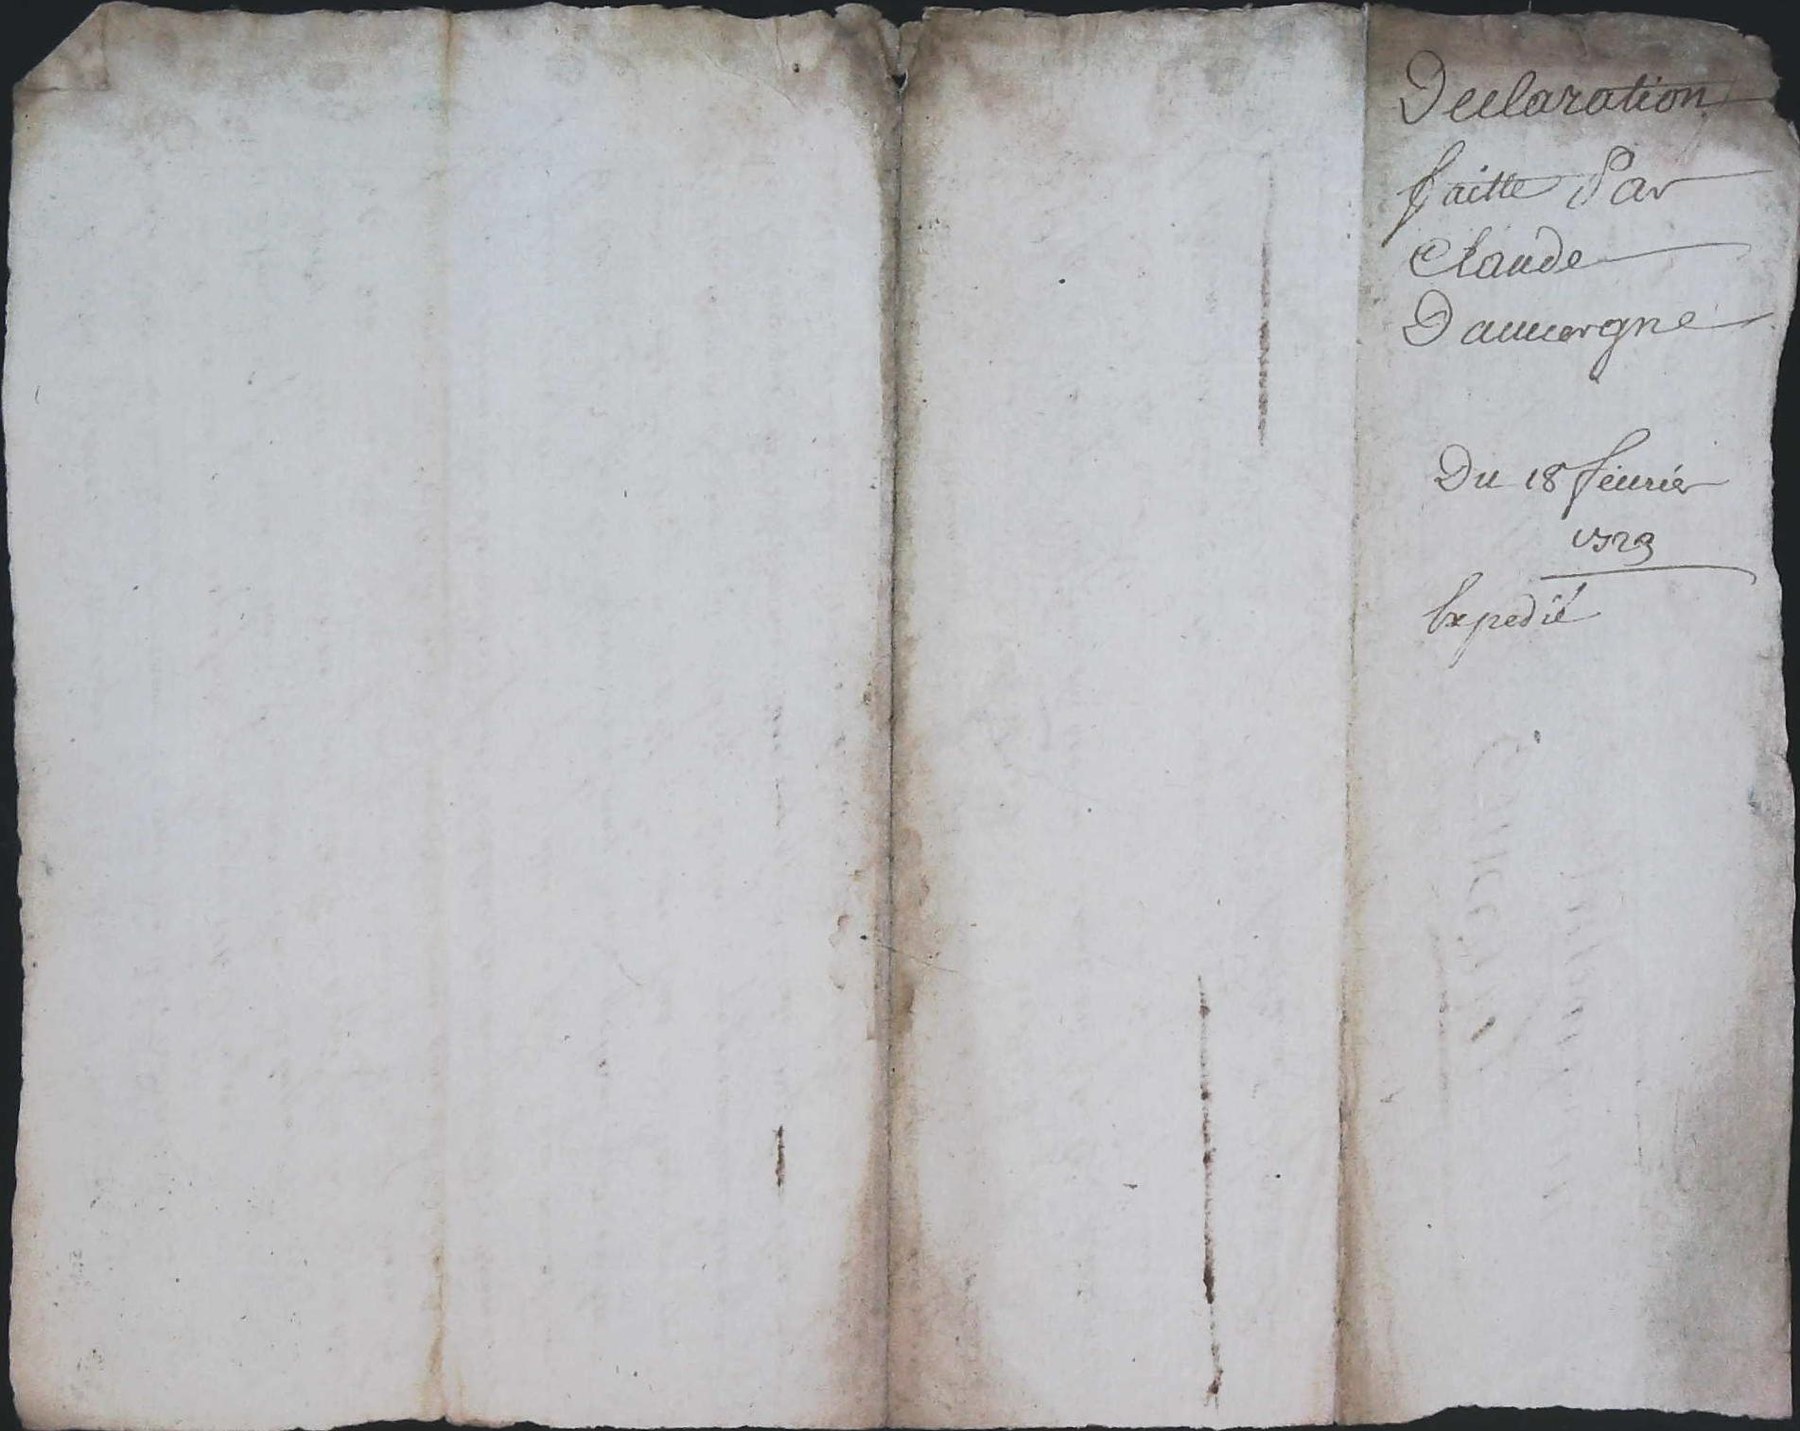 Declaration
faitte Par
Claude
Dauuergne
Du 18 feiurier
1723
Expedié